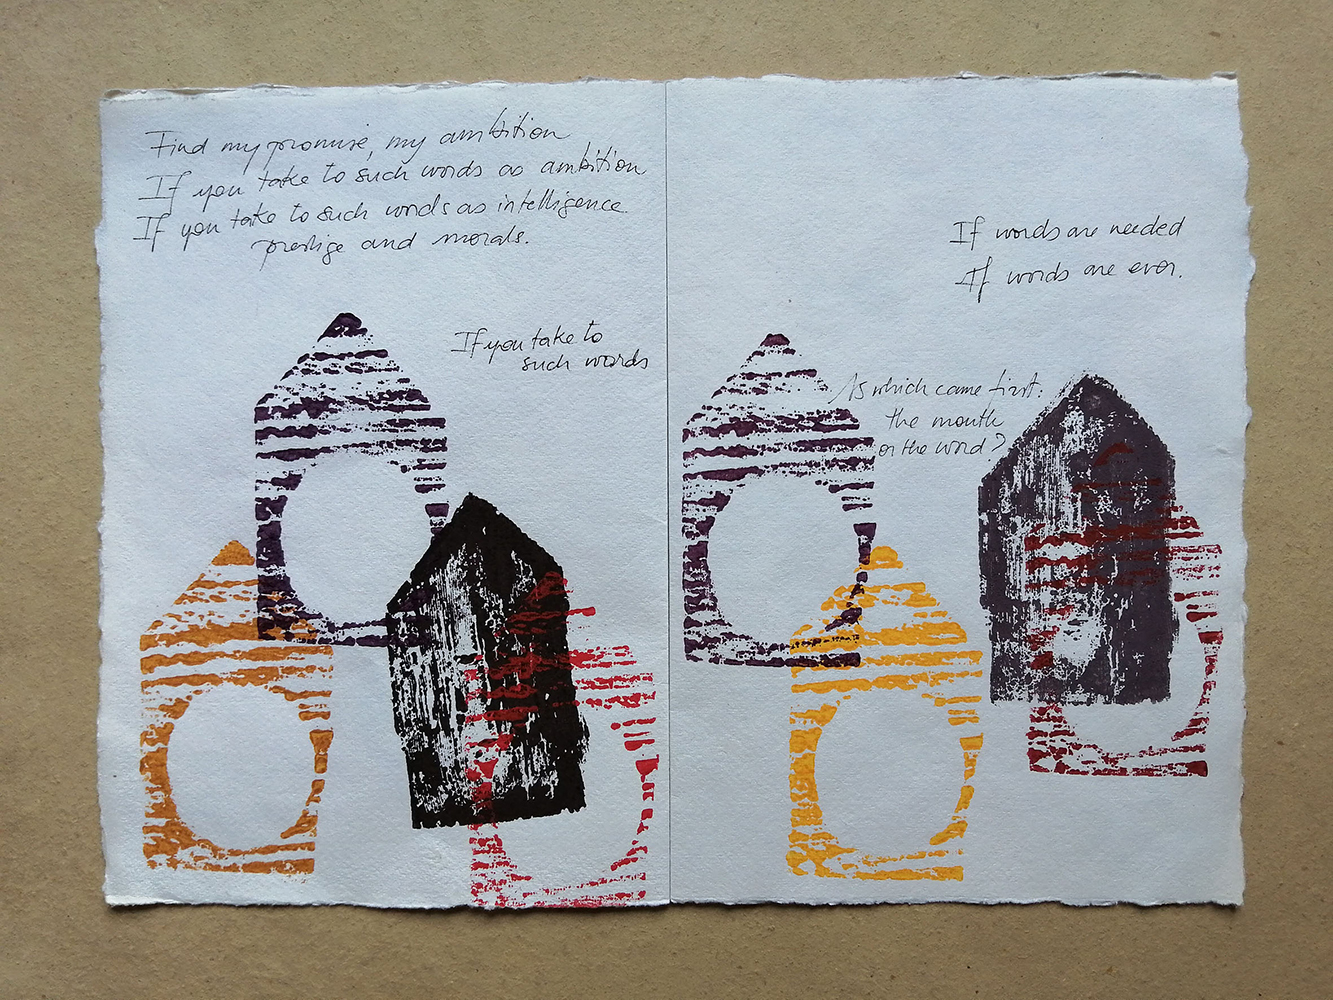 Find my promise, my ambition
If you take to such words as ambition
If you take to such words as intelligence
prestige and morals.
If you take to
such words
If words are needed
If words are ever.
As which came first:
the mouth
or the word?